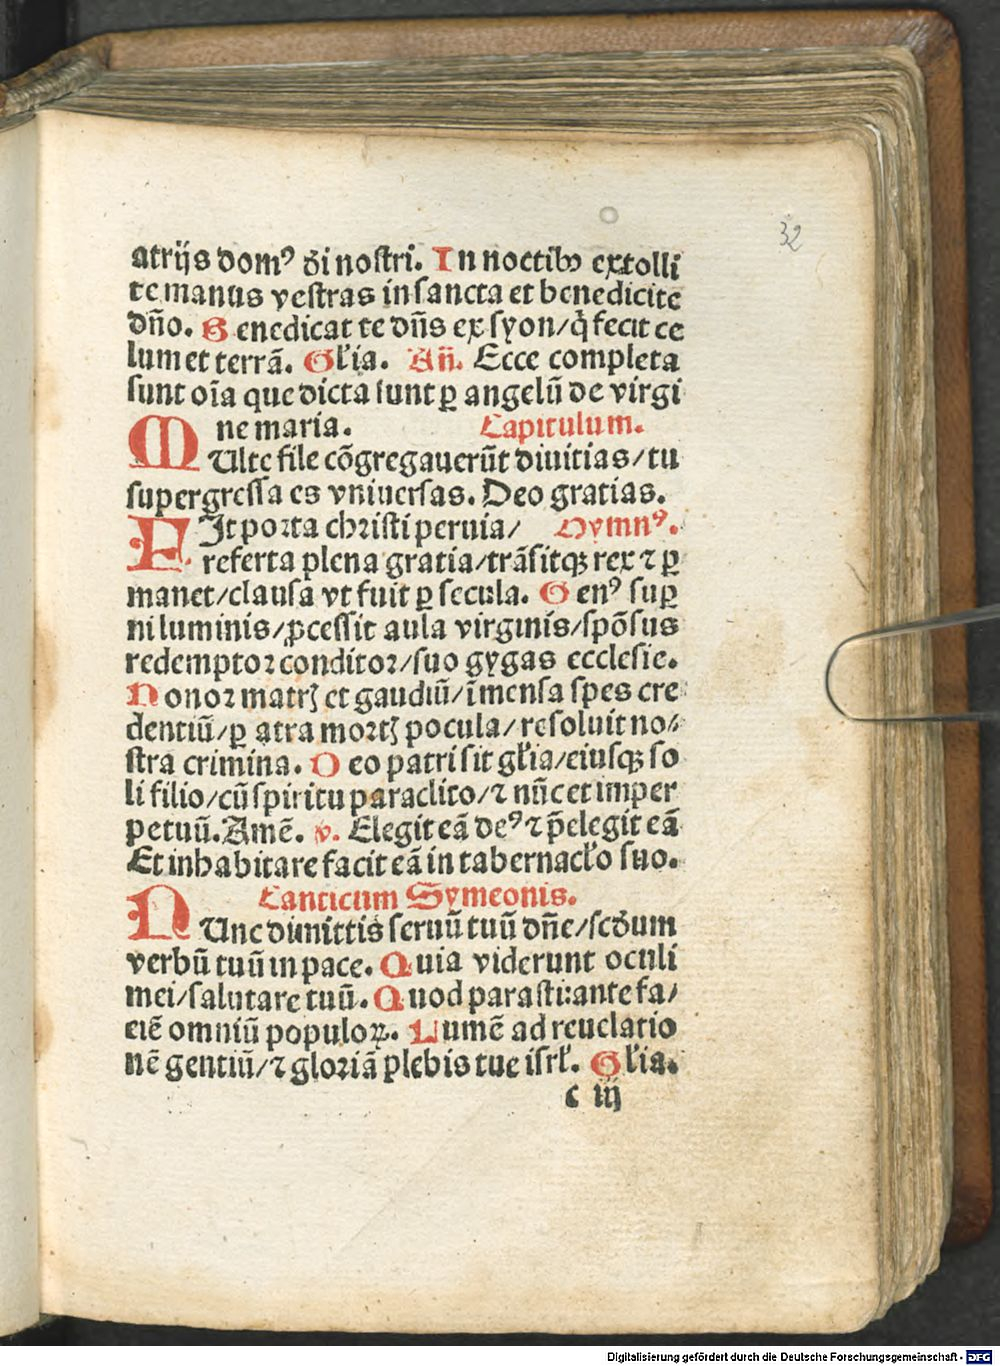 32
atrijs domꝰ d̄i nostri. In noctibꝰ extolli
te manus vestras in sancta et benedicite
dño. Benedicat te dn̄s ex syon/q̇ fecit ce
lum et terrā. Gl̓ia. An̄. Ecce completa
sunt oīa que dicta sunt ꝑ angelū de virgi
ne maria. Capitulum.
MUlte file cōgregauerūt diuitias/tu
supergressa es vniuersas. Deo gratias.
FIt porta christi peruia/ Hymnꝰ.
referta plena gratia/trāsitqꝫ rex ⁊ ꝑ
manet/clausa vt fuit ꝑ secula. Genꝰ suꝑ
ni luminis/ꝓcessit aula virginis/spōsus
redemptor conditor/suo gygas ecclesie.
Honor matrꝭ et gaudiū/īmensa spes cre
dentiū/ꝑ atra mortꝭ pocula/resoluit no⸗
stra crimina. Deo patri sit gl̓ia/eiusqꝫ so
li filio/cū spiritu paraclito/⁊ nūc et imper
petuū. Amē. v. Elegit eā deꝰ ⁊ p̄elegit eā
Et inhabitare facit eā in tabernacl̓o suo.
Canticum Symeonis.
NUnc dimittis seruū tuū dn̄e/scd̄um
verbū tuū in pace. Quia viderunt oculi
mei/salutare tuū. Quod parasti:ante fa/
ciē omniū populoꝝ. Lumē ad reuelatio
nē gentiū/⁊ gloriā plebis tue isrl̓. Gl̓ia.
c iij
Digitalisierung gefördert durch die Deutsche Forschungsgemeinschaft - DFG